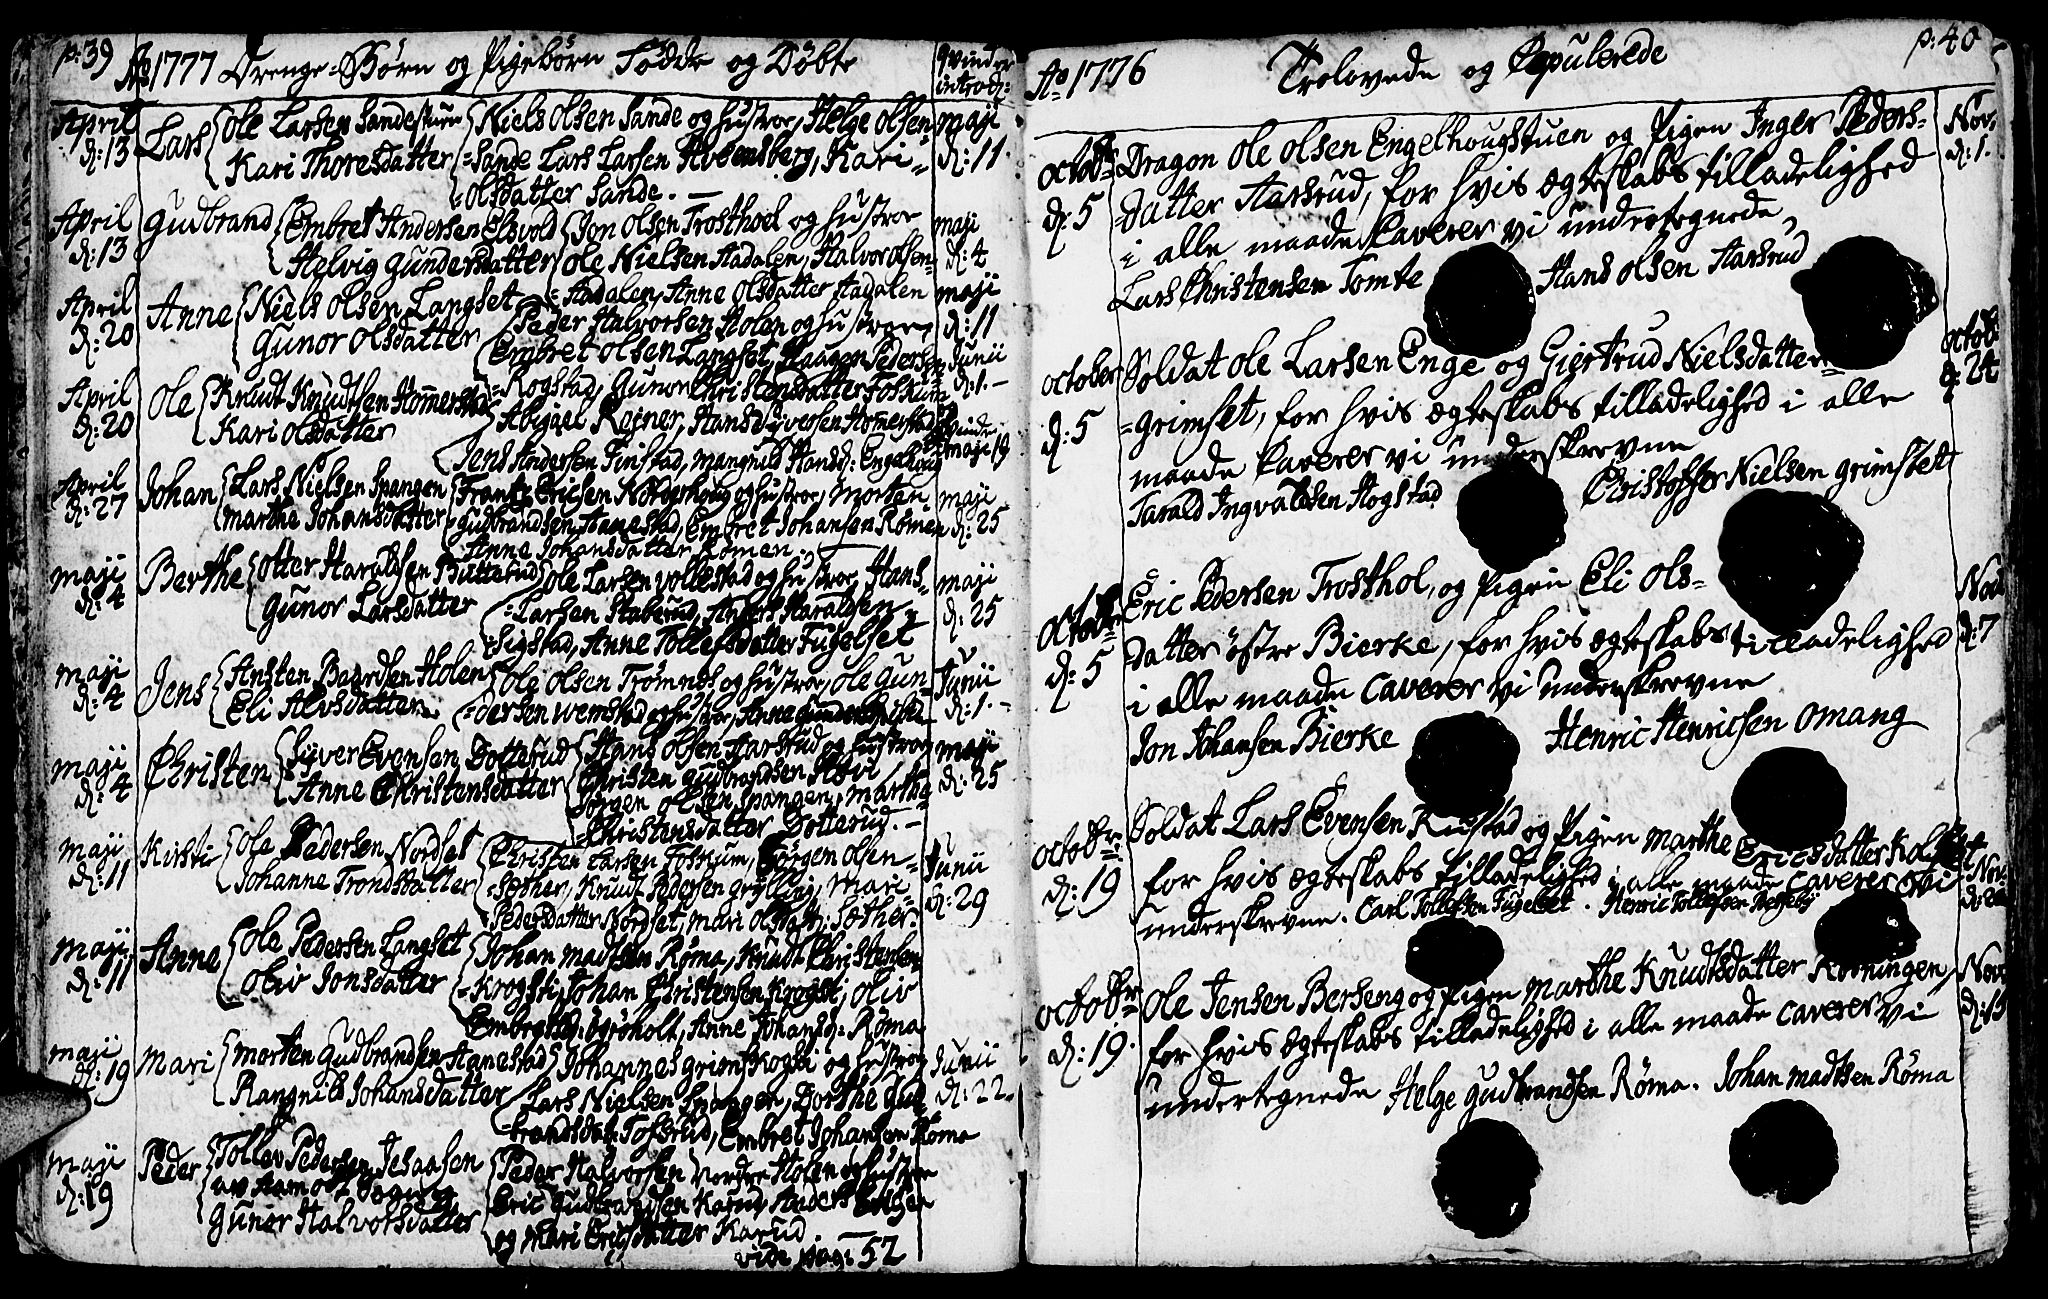 p: 39
Ao 1777 Drenge-Børn og Pigebörn Fødde og Döbte
Qvinder introd:
April d: 13
Lars
Ole Larsen Sandestuen
Kari Thoresdatter
Niels Olsen Sande og hustroe, Helge Olsen
Sande Lars Larsen Kari
Olsdatter Sande.
maji d: 11.
April d: 13
Gudbrand
Embret Andersen Elsvold
Helvig Gundersdatter
Jon Olsen Trosthoel og hustroe
Ole Nielsen Aadalen, Halvor Olsen
Aadalen, Anne Olsdatter Aadalen
maji d: 4
April d: 20
Anne
Niels Olsen Langset
Gunor Olsdatter
Peder Halvorsen Holen og hustroe,
Embret Olsen Langset, Haagen Pedersen
Rogstad, Gunor Christensdatter Foskum
maji d: 11
April d: 20
Ole
Knudt Knudtsen Hommerstad
Kari Olsdatter
Abigael Rejner, Hans Syversen Homerstad
Jens Andersen Finstad, Mangnild Hansd: Engelhoug
Junii d: 1.
maji 19
April d: 27
Johan
Lars Nielsen Spangen
Marthe Johansdatter
Frantz Ericsen Norderhoug og hustroe, Morten
Gudbrandsen Aanestad, Embret Johansen Römen
Anne Johansdatter Römen.
maji d: 25
maji d: 4
Berthe
Otter Haraldsen Butterud
Gunor Larsdatter
Ole Larsen Vollestad og hustroe, Hans
Larsen Staberud, Anders Haraldsen
Sigstad, Anne Tollefsdatter Fugelset
maji d: 25
maji d: 4
Jens
Ansten Baardsen Holen
Eli Alvsdatter
Ole Olsen Trömnes og hustroe, Ole Gun-
dersen Wemstad og hustroe, Anne
Junii d: 1.
maji d: 4
Christen
Syver Evensen Dotterud
Anne Christensdatter
Hans Olsen Aarsrud og hustroe
Christen Gudbrandsen Hovi
Jörgen Olsen Spangen, Marthe
Christensdatter Dotterud.
maji d: 25
maji d: 11
Kirsti
Ole Pedersen Nordset
Johanne Trondsdatter
Christen Larsen Foskum, Jörgen Olsen
Sæther, Knudt Pedersen Grylling, Mari
Pedersdatter Nordset, Mari Olsdatt: Sæther.
Junii d: 29
maji d: 11
Anne
Ole Pedersen Langset
Oliv Jonsdatter
Johan Madtsen Röma, Knudt Christensen
Krogsti, Johan Christensen Krogsti, Oliv
Embretsd: Ögröholt, Anne Johansd: Röma
maji d: 19
Mari
Morten Gudbrandsen Aanestad
Rangnild Johansdatter
Johannes Grims Kogsti og hustroe
Lars Nielsen Spangen, Dorthe Gud
brandsdat: Tofsrud, Embret Johansen Röma
Junii d: 22.
maji d: 19
Peder
Tollev Pedersen
av Aamodt
Gunor Halvorsdatter
Peder Halvorsen Nordre Holen og hustroe
Eric Gudbrandsen Karud, Anders
og Mari Ericsdatter Karud.
vide pag: 52
Ao 1776 Trolovede og Copulerede p: 40
Octobr: d: 5
Dragon Ole Olsen Engelhougstuen og Pigen Inger Peders-
datter Aarsrud, for hvis ægteskabs tilladelighed
i alle maade caverer vi undertegnede
Lars Christensen Tomte Hans Olsen Aarsrud
Nov: d: 1.
October d: 5
Soldat Ole Larsen Enge og Giertrud Nielsdatter
Grimset, for hvis ægteskabs tilladelighed i alle
maade caverer vi underskrevne
Tarald Ingvaldsen Hogstad Christopher Nielsen Grimset
Octob: d: 24
Octobr d: 5
Eric Pedersen Trosthol, og Pigen Eli Ols-
datter østre Bierke, for hvis ægteskabs tilladelighed
i alle maade caverer vi underskrevne
Jon Johansen Bierke Henric Henricsen Omang
Nov: d: 7
Octobr: d: 19
Soldat Lars Evensen Kiustad og Pigen Marthe Ericsdatter
for hvis ægteskabs tilladelighed i alle maade caverer vi
underskrevne. Carl Tollefsen Fugelset. Henric Tollefsen
Nov:
Octobr d: 19.
Ole Jensen Berseng og Pigen Marthe Knudtsdatter Korningen,
for hvis ægteskabs tilladelighed i alle maade caverer vi
undertegnede Helge Gudbrandsen Röma. Johan Madtsen Röma
Nov: d: 15